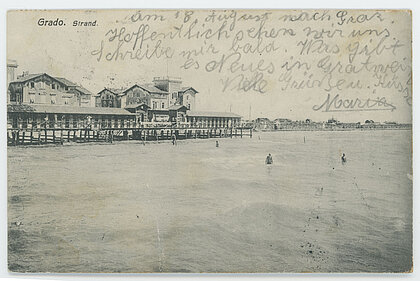 Grado. Strand.
Am 18. August nach Graz.
Hoffentlich sehen wir uns
Schreibe mir bald. Was gibt
es Neues in Gratwein
Viele Grüße u. Küsse
Maria